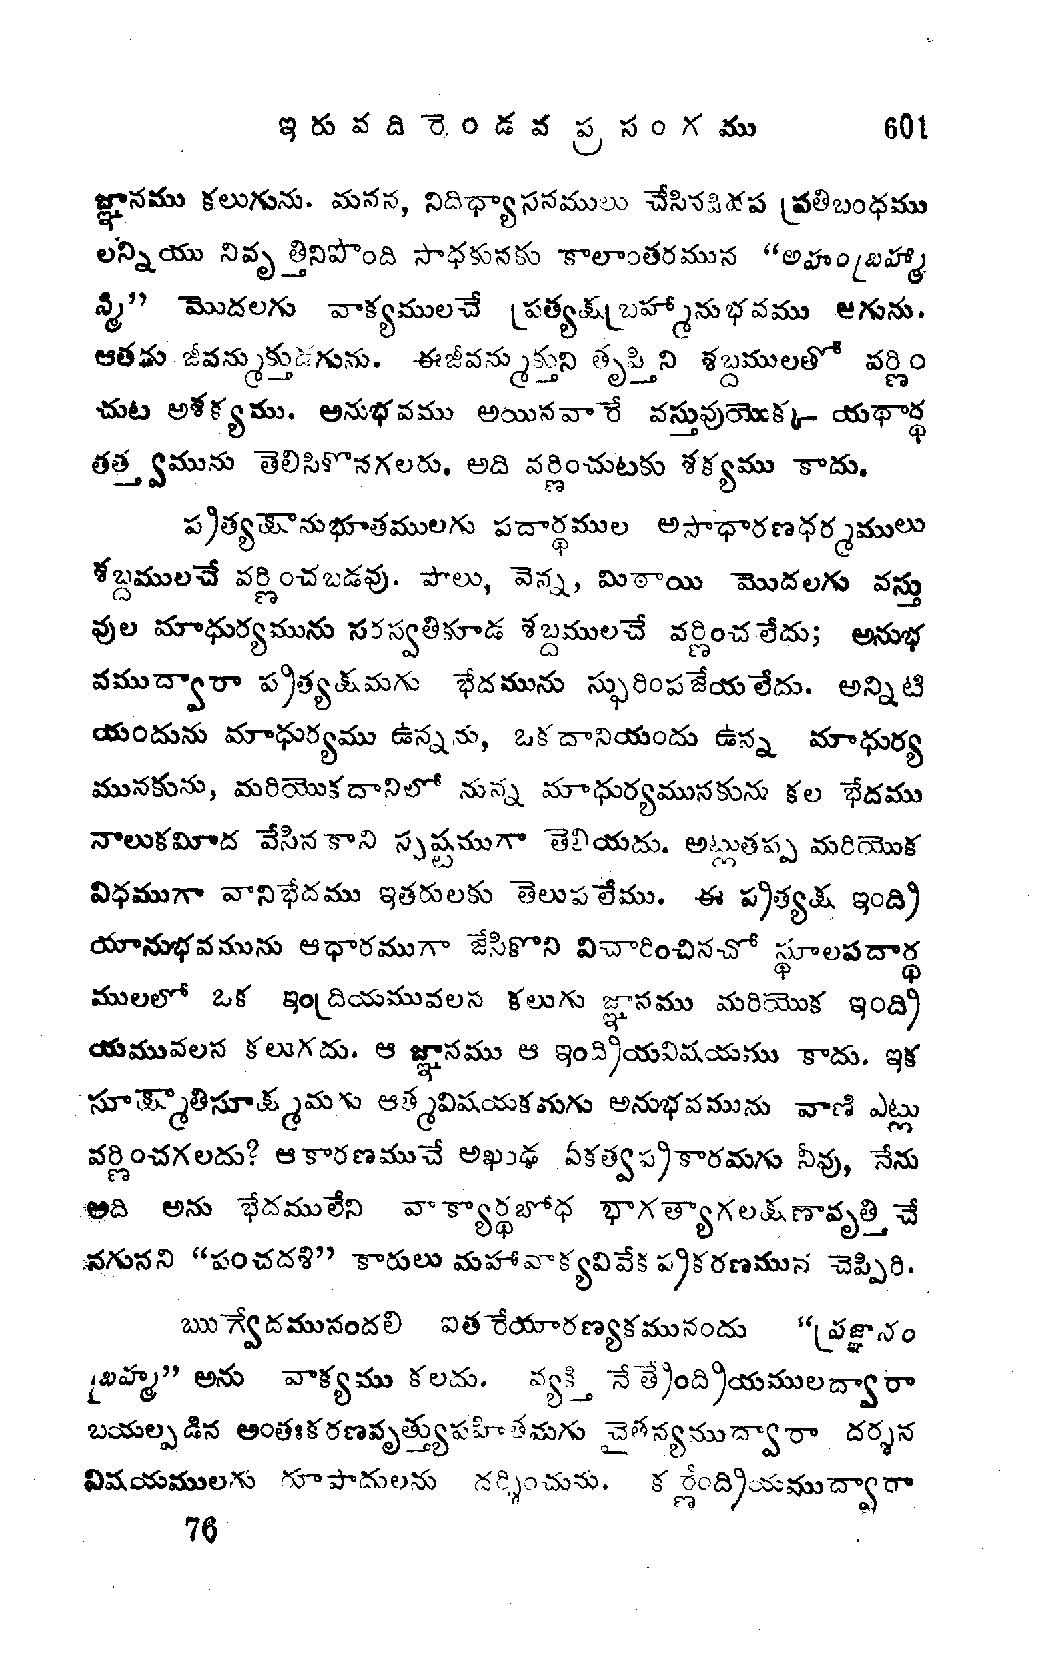 ఇరువదిరెండవ ప్రసంగము 601
జ్ఞానము కలుగును. మనన, నిదిధ్యాసనములు చేసినపిదప ప్రతిబంధము
లన్నియు నివృత్తినిపొంది సాధకునకు కాలాంతరమున “అహంబ్రహ్మా
స్మి” మొదలగు వాక్యములచే ప్రత్యక్షబ్రహ్మానుభవము అగును.
ఆతడు జీవన్ముక్తుడగును. ఈజీవన్ముక్తుని తృప్తిని శబ్దములతో వర్ణిం
చుట అశక్యము. అనుభవము అయినవారే వస్తువుయొక్క యథార్థ
తత్త్వమును తెలిసికొనగలరు. అది వర్ణించుటకు శక్యము కాదు.
ప్రత్యక్షానుభూతములగు పదార్థముల అసాధారణధర్మములు
శబ్దములచే వర్ణించబడవు. పాలు, వెన్న, మిఠాయి మొదలగు వస్తు
వుల మాధుర్యమును సరస్వతికూడ శబ్దములచే వర్ణించలేదు; అనుభ
వముద్వారా ప్రత్యక్షమగు భేదమును స్ఫురింపజేయలేదు. అన్నిటి
యందును మాధుర్యము ఉన్నను, ఒకదానియందు ఉన్న మాధుర్య
మునకును, మరియొకదానిలో నున్న మాధుర్యమునకును కల భేదము
నాలుకమీద వేసినకాని స్పష్టముగా తెలియదు. అట్లుతప్ప మరియొక
విధముగా వానిభేదము ఇతరులకు తెలుపలేము. ఈ ప్రత్యక్ష ఇంద్రి
యానుభవమును ఆధారముగా జేసికొని విచారించినచో స్థూలపదార్థ
ములలో ఒక ఇంద్రియమువలన కలుగు జ్ఞానము మరియొక ఇంద్రి
యమువలన కలుగదు. ఆ జ్ఞానము ఆ ఇంద్రియవిషయము కాదు. ఇక
సూక్ష్మాతిసూక్ష్మమగు ఆత్మవిషయకమగు అనుభవమును వాణి ఎట్లు
వర్ణించగలదు? ఆకారణముచే అఖండ ఏకత్వప్రకారమగు నీవు, నేను
అది అను భేదములేని వాక్యార్థబోధ భాగత్యాగలక్షణావృత్తిచే
నగునని “పంచదశి” కారులు మహావాక్యవివేకప్రకరణమున చెప్పిరి.
ఋగ్వేదమునందలి ఐతరేయారణ్యకమునందు “ప్రజ్ఞానం
బ్రహ్మ” అను వాక్యము కలదు. వ్యక్తి నేత్రేంద్రియములద్వారా
బయల్పడిన అంతఃకరణవృత్త్యుపహితమగు చైతన్యముద్వారా దర్శన
విషయములగు రూపాదులను దర్శించును. కర్ణేంద్రియముద్వారా
76